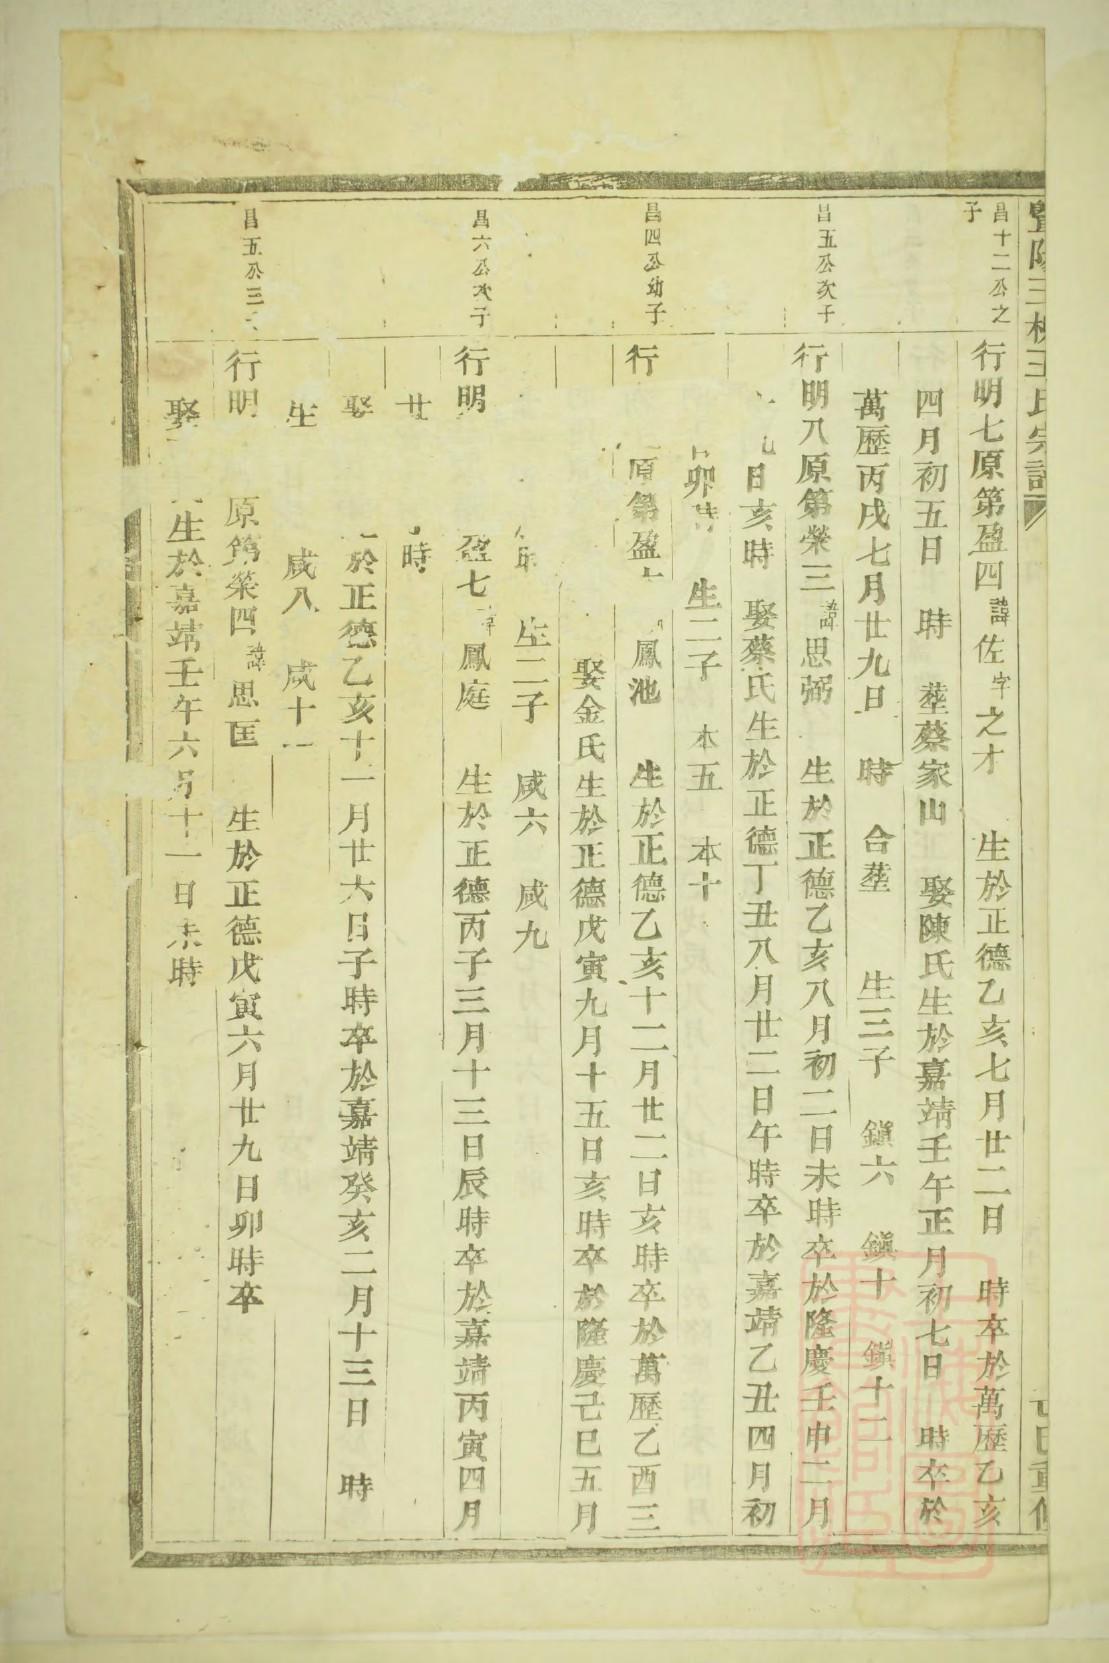 暨陽王氏宗譜
昌十二公之
子
行明七原第盈四諱佐字之才 生於正德乙亥七月廿二日 時卒於萬歷乙亥
四月初五日 時 塟蔡家山 娶陳氏生於嘉靖壬午正月初七日 時卒於
萬歷丙戌七月廿九日 時 合塟 生三子 鎭六 鎭十 鎭十二
昌五公次子
行明八原第榮三諱思弼 生於正德乙亥八月初二日未時卒於隆慶壬申二月
日亥時 娶蔡氏生於正德丁丑八月廿二日午時卒於嘉靖乙丑四月初
卯時 生二子 本五 本十
昌四公幼子
行 原第盈 鳳池 生於正德乙亥十二月廿二日亥時卒於萬歷乙酉三
娶金氏生於正德戊寅九月十五日亥時卒於隆慶己巳五月
生二子 咸六 咸九
昌六公次子
行明 盈七諱鳳庭 生於正德丙子三月十三日辰時卒於嘉靖丙寅四月
廿 時
娶 於正德乙亥十一月廿六日子時卒於嘉靖癸亥二月十三日 時
生 咸八 咸十一
昌五公三
行明 原第榮四諱思匡 生於正德戊寅六月廿九日卯時卒
娶 生於嘉靖壬午六月十一日未時